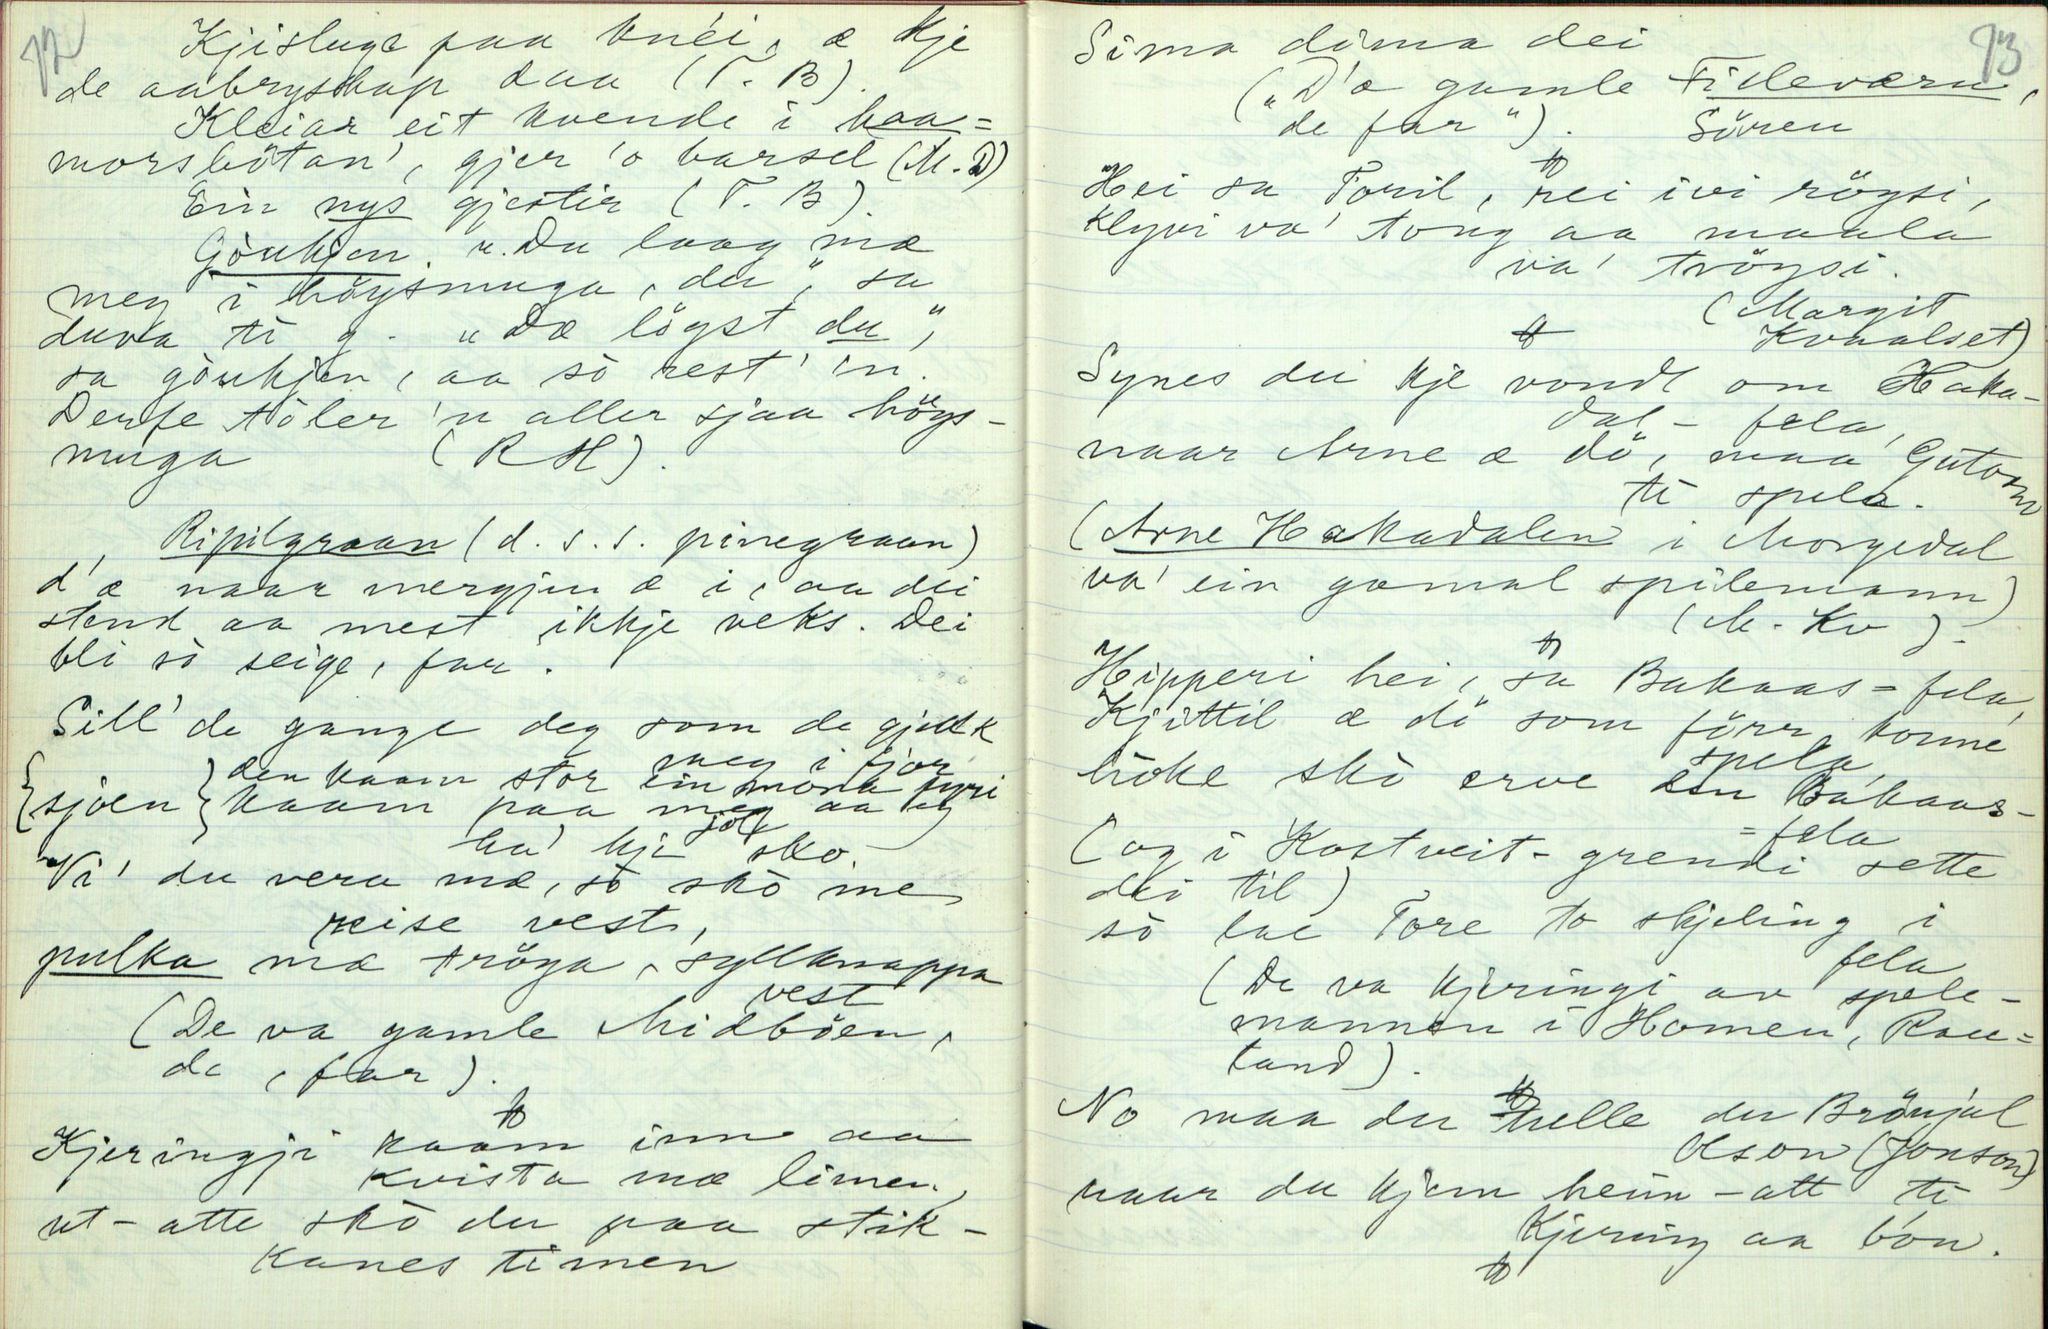 72
Kjisluge paa knéi, æ kje
de aabryskap daa (T. B).
Kleiar eit kvende i haa=
morsbötan', gjer 'o barsel (M. D)
Ein nys gjestir (T. B).
Göukjen. "Du laag mæ
meg i höysmuga, du", sa
duva ti g. "Dæ lögst du",
sa göukjen, aa so rest' 'n.
Derfe töler 'n aller sjaa höys-
muga (R H).
Ripilgraan (d. s. s. pinegraan)
d'æ naar mergjen æ i, aa dei
stend aa mest ikkje veks. Dei
bli so seige, far.
Sill' de gange deg som de gjekk
meg i fjor
den kaam stor ein mona fyri
{sjoen} kaam paa meg aa eg
ha' kje sko.
Vi' du vera mæ, so sko me
reise vest,
pulka mæ tröya, syllknappa
vest
(De va gamle Midböen,
de, far).
Kjeringji kaam inn aa
kvista mæ limen,
ut-atte sko du paa stik-
kanes timen
73
Sima dima dei
("D'æ gamle Fidleværn,
de far"). Sören
Hei sa Toril, rei ivi röysi,
Klyvi va' tong aa maala
va' tröysi.
(Margit
Kvaalset)
Synes du kje vondt om Haka-
dal-fela,
naar Arne æ dö, maa Gutorm
ti spela.
(Arne Hakadalen i Morgedal
va' ein gamal spilemann)
(M. Kv).
Hipperi hei, sa Bakaas-fela,
Kjittil æ dö som förr konne
spela,
håke sko erve en Bakaas-
=fela
(og i Kostveit-grendi sette
dei til)
so lae Tore to skjeling i
fela
(De va kjeringi av spele-
mannen i Homen, Rau=
land).
No maa du helle du Brönjul
Olson (Jonson)
naar du kjem heim-att ti
Kjering aa bon.